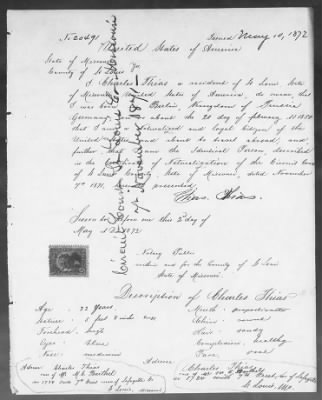 No 20491 Issued May 10, 1872
United States of America
State of Missouri
County of St Louis
I Charles Thias a resident of St Louis State
of Missouri United States of America, do swear, that
I was born in Berlin, Kingdom of Prussia
Germany, on or about the 20 day of February AD 1850
that I am a Naturalized and loyal Citizen of the
United States and about to travel abroad, and
further that I am the Identical Person described
in the Certificate of Naturalization of the Circuit Court
of St Louis County, State of Missouri, dated November
7th 1871, presented
Chas. Thias.
Sworn to before me this 2 day of
May AD 1872
Notary Public
within and for the County of St Louis
State of Missouri.
Circuit Court St Louis Co Missouri
7th November 1871
Description of Charles Thias
Age 22 Years
Stature 5 feet 8 inches
Forehead high
Eyes blue
Nose medium
Mouth
Chin round
Hair sandy
Complexion healthy
Face oval
Address
Charles Thias
St Louis, Mo.
Charles Thias
St Louis, Missouri